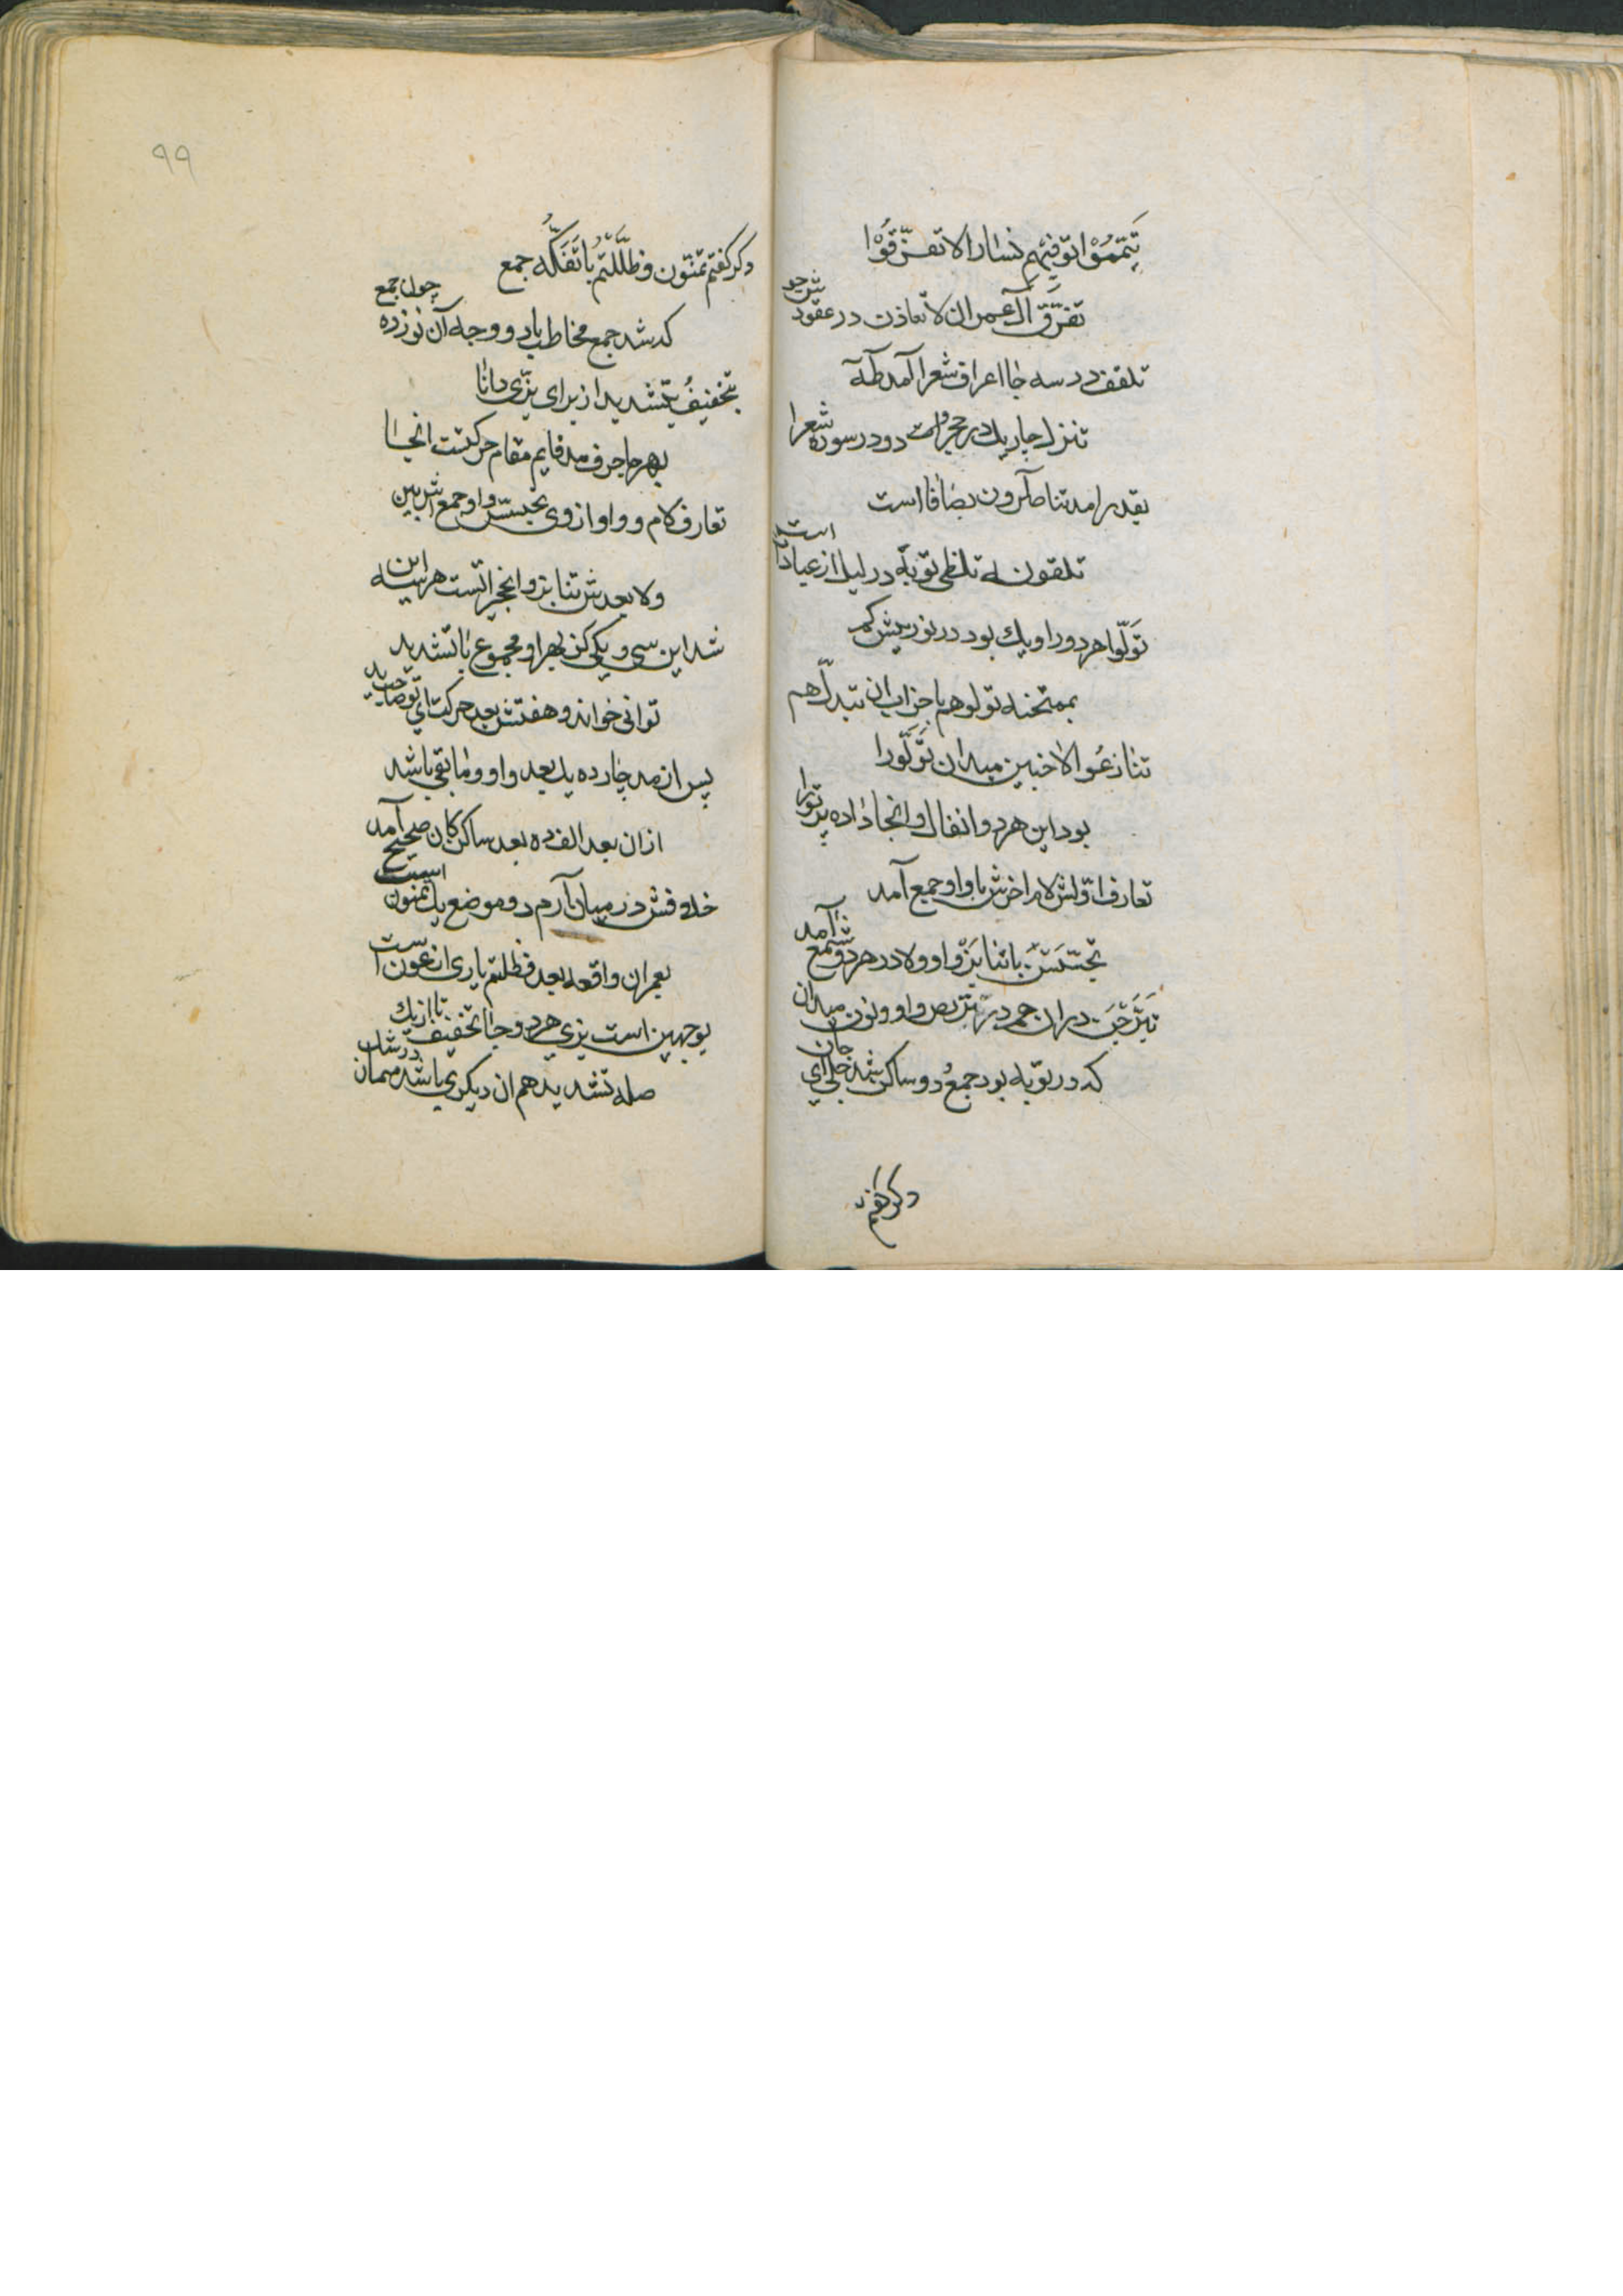 تَیَمّمُوْا توَفّیهم نسا را لا تفَرّقُوْا
تفَرّقَ آل عمران لا تعاذن در عقود ش جو
تلقف در سه جا اعراف شعرا آمد طه
تنزل چار یک در حجر ولت دو در سوره شعرا
بقدر امد تناصرون بصافا است
تلقون له تلظی توبه در لیل از عبادات است
تَوَلّوا هر دو را و یک بود در نور پیش کم
بممتحنه تولوهم باحزاب ان تبدلّ هم
تنازعُوا لا خبین میدان تَوَلّورا
بود این هر دو انفال و انجا داده پرتو را
تعارف اوّلش لام اخرش با واو جمع آمد
تجسّسَ با تنابَزّ واو و لا در هر دو شمع آمد
تَبَرّجَ در ان جم در تَرَبّص واو و نون میدان
که در توبه بود جمعُ دو ساکن شد جلی ای جان
دکر کفتم
٩٩
دکر کفتم تمنّون و ظَلّتُم با تَفَکّهُ جمع
که شد جمع مخاطب باد و وجه آن نوزده چون جمع
بتخفیفُ بتشدید از برای بزّی دانا
بهر جا حرف مد قایم مقام حرکتست انجا
تعارف لام و واو از وی تجسس واو جمع اش بین
ولا بعدش تنابز و انجراتست هر سه این
شد این سی و یکی کن بهر او مجموع با تشدید
توانی خواند و هفتش بعد حرکت ای تو صاحب دید
پس از مد چارده یک بعد واو و مابقی باشد
از ان بعد الف ده بعد ساکن کان صحیح آمد
خلافش در میان آرم دو موضع یک تمنون است
بعمران واقعه بعد فظلتم یاری از عون است
بوجهین است بزی هر دو جا تخفیف تا از یک
صله تشدید هم ان دیکری باشد میمان در شک